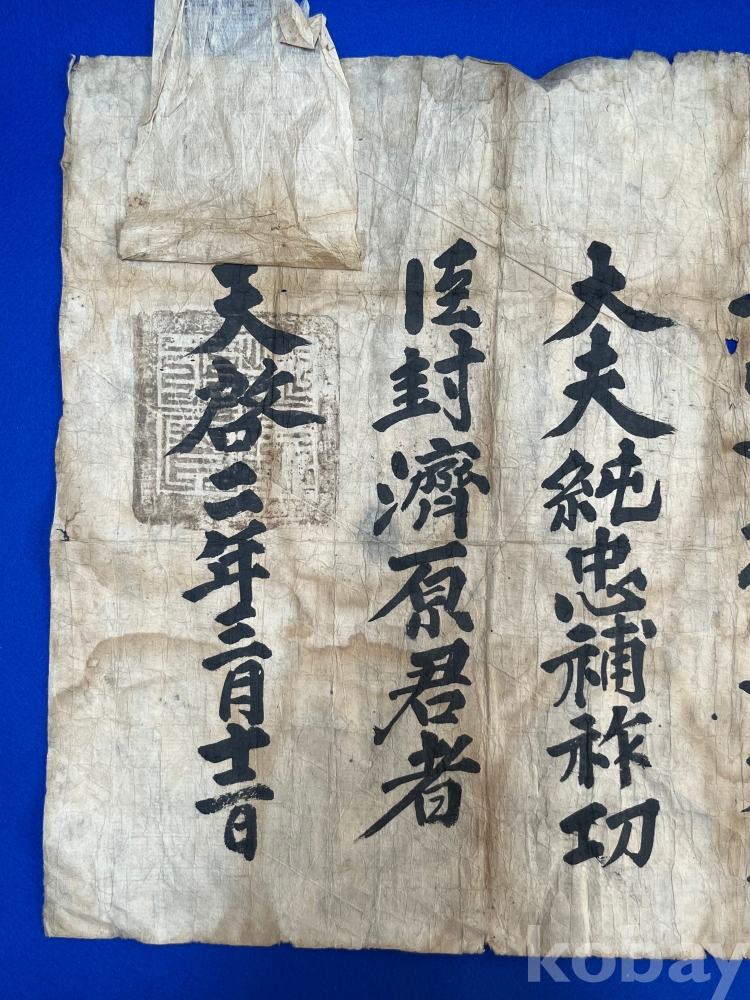 大夫純忠補祚功
臣封濟原君者
天啓二年三月十二日
kobay